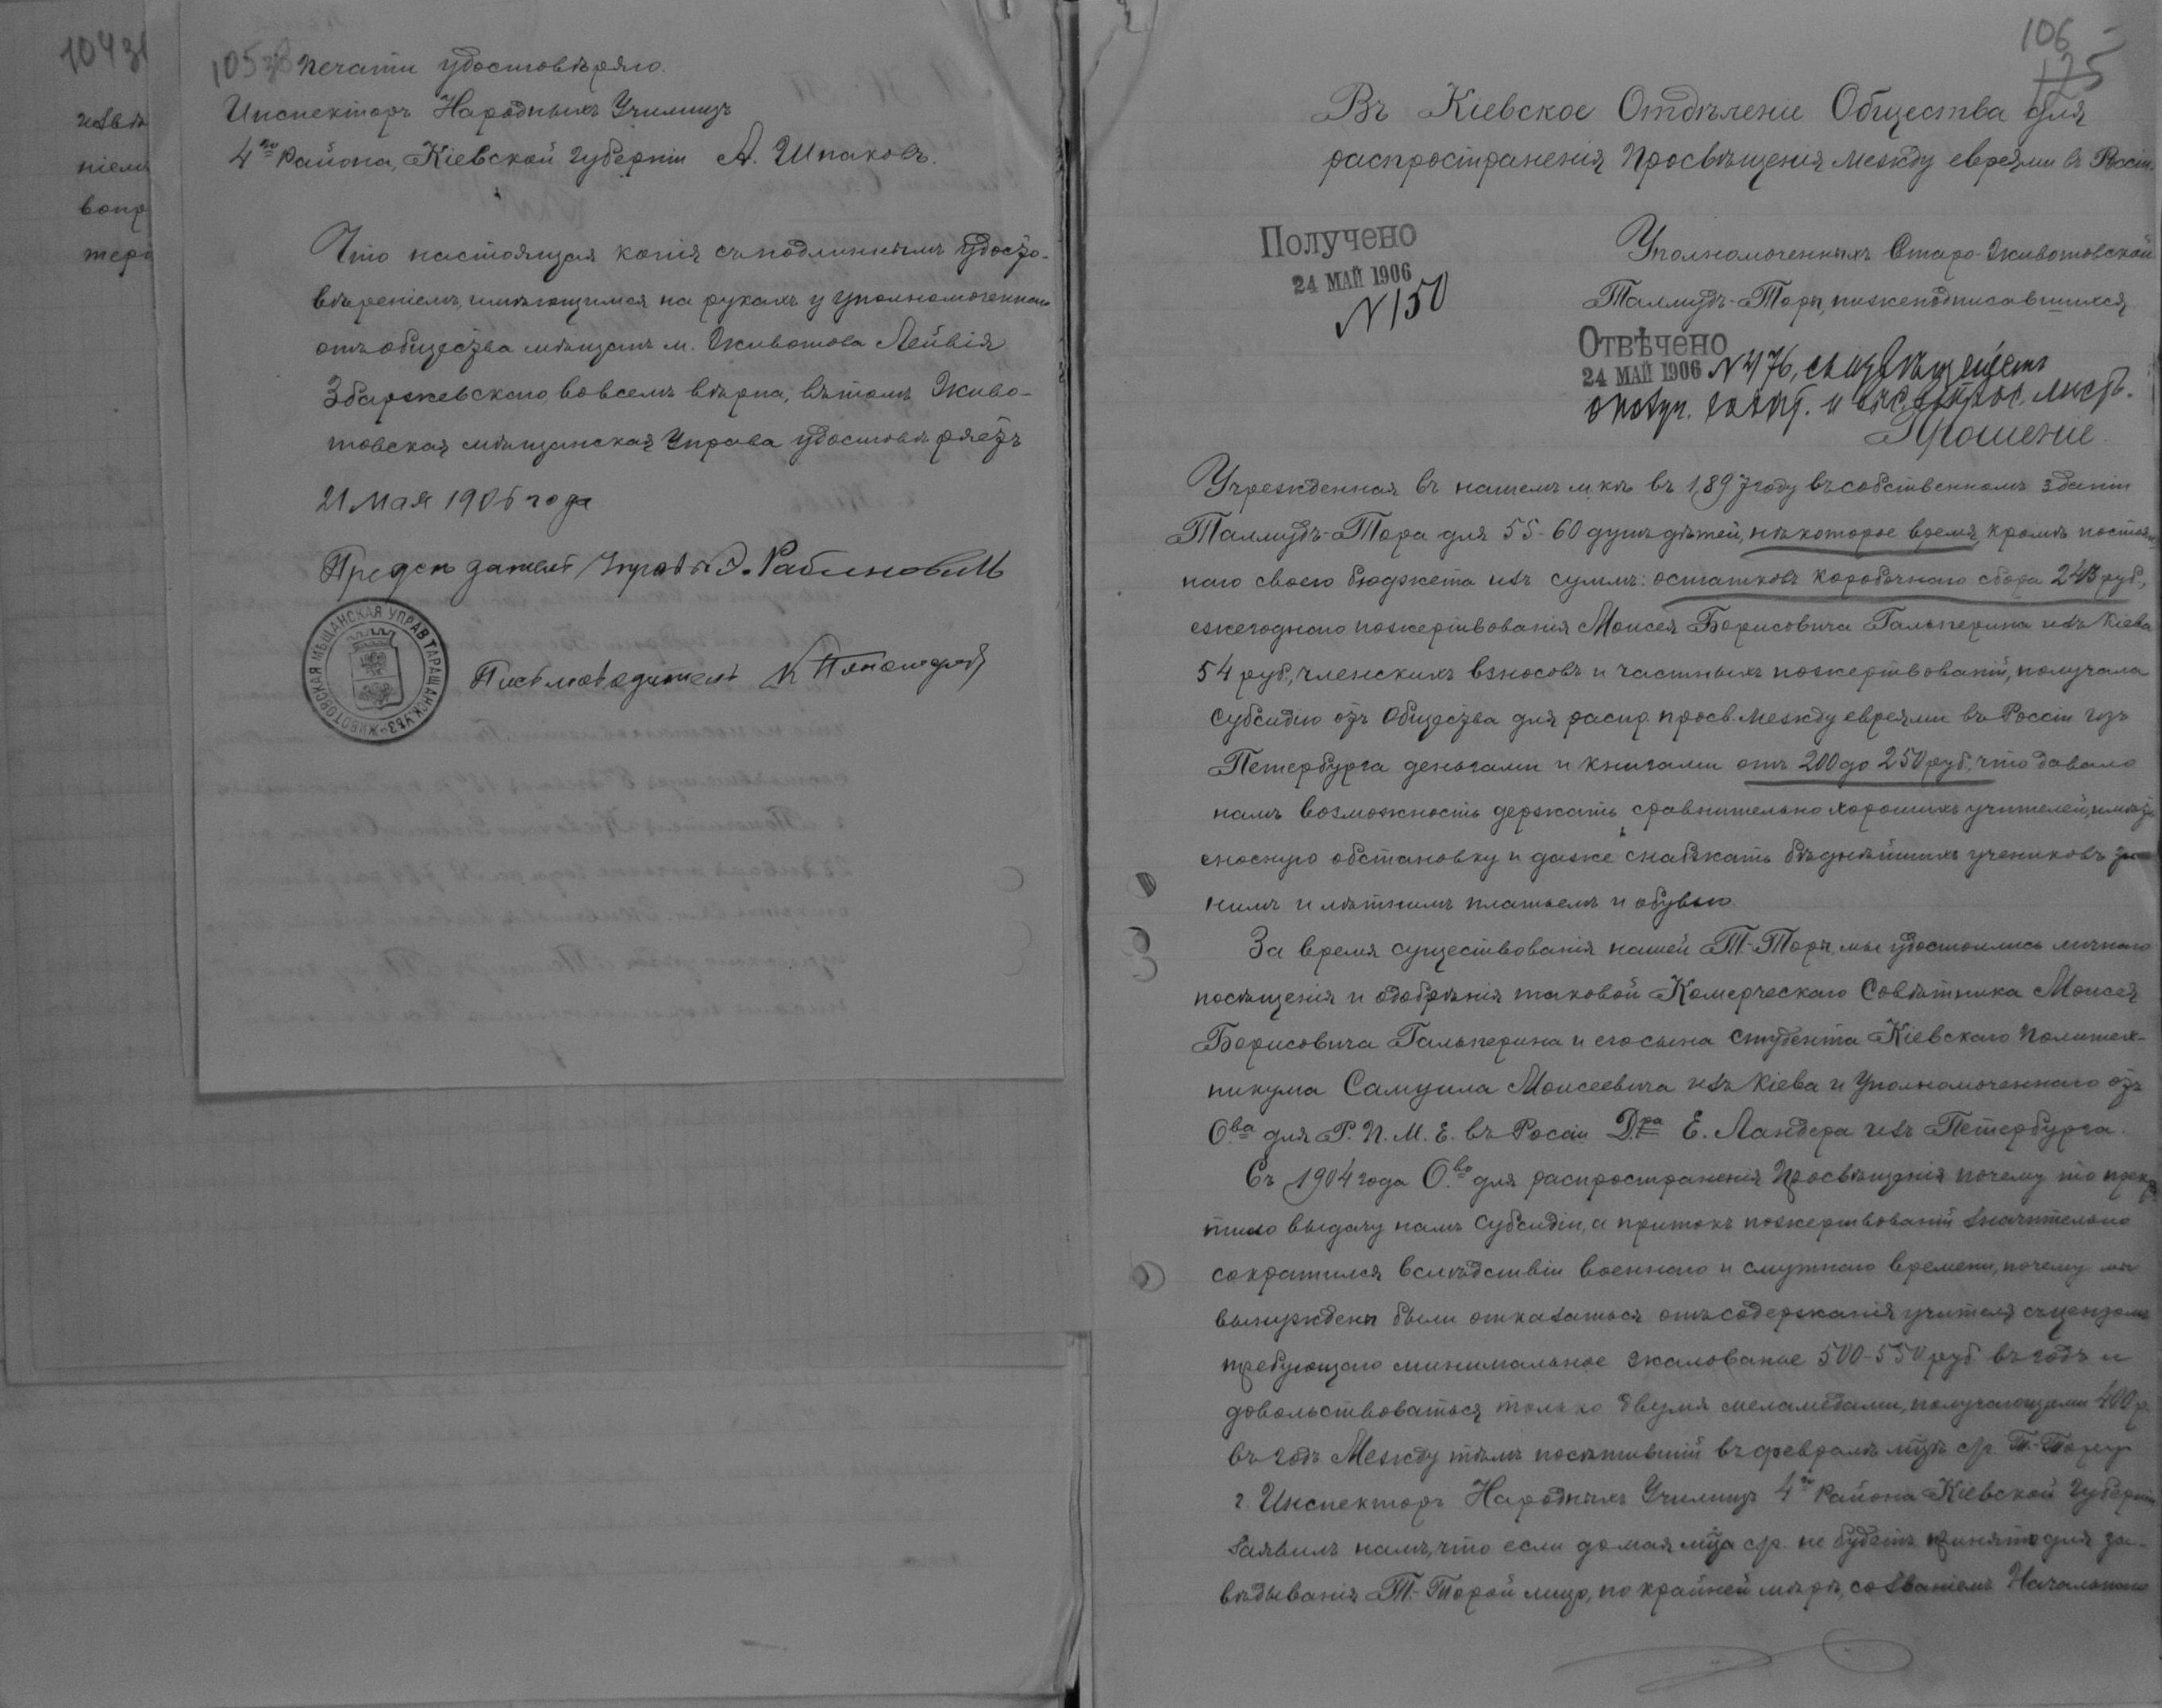 1043
извѣ
ніемъ
вопр
тера
105
печати удостовѣряю.
Инспекторъ Народныхъ Училищъ
4го Района, Кіевской Губерніи А. Шпаковъ.
Что настоящая копія съ подлиннымъ удосто-
вѣреніемъ, имѣющимся на рукахъ у уполномоченнаго
отъ общества мѣщанъ м. Животова Лейвія
Збаржевскаго во всемъ вѣрна, въ томъ Живо-
товская мѣщанская Управа удостовѣряетъ
21 Мая 1906 года
Предсѣдатель Управы Э. Рабиновичъ
ЖИВОТОВСКАЯ МѢЩАНСКАЯ УПРАВ ТАРАЩАНСК. УѢЗ.
Письмоводитель К
106
125
Въ Кіевское Отдѣленіе Общества для
распространенія Просвѣщенія между евреями въ Россіи.
Получено
24 МАЙ 1906
N 150
Уполномоченныхъ Старо-Животовской
Талмудъ-Торы, нижеподписавшихся
Отвѣчено
24 МАЙ 1906 N 476, съ
и лист.
Прошеніе.
Учрежденная въ нашемъ м-кѣ въ 1897 году въ собственномъ зданіи
Талмудъ-Тора для 55-60 душъ дѣтей, нѣкоторое время, кромѣ постоян-
наго своего бюджета изъ суммъ: остатковъ коробочнаго сбора 243 руб.,
ежегоднаго пожертвованія Моисея Борисовича Гальперина изъ Кіева
54 руб., членскихъ взносовъ и частныхъ пожертвованій, получала
субсидію отъ Общества для распр. просв. между евреями въ Россіи изъ
Петербурга деньгами и книгами отъ 200 до 250 руб. что давало
намъ возможность держать сравнительно хорошихъ учителей, имѣть
сносную обстановку и даже снабжать бѣднѣйшихъ учениковъ зим-
нимъ и лѣтнимъ платьемъ и обувью
За время существованія нашей Т.-Торы, мы удостоились личнаго
посѣщенія и одобрѣнія таковой Комерческаго Совѣтника Моисея
Борисовича Гальперина и его сына студента Кіевскаго Политех-
никума Самуила Моисеевича изъ Кіева и Уполномоченнаго отъ
О.ва для Р. П. М. Е. въ Росаіи Дра Е. Ландера изъ Петербурга.
Съ 1904 года О.во для распространенія Просвѣщенія почему то прекра-
тило выдачу намъ субсидіи, а притокъ пожертвованій значительно
сократился вслѣдствіи военнаго и смутнаго времени, почему мы
вынуждены были отказаться отъ содержанія учителя съ цензомъ
требующаго минимальное жалованье 500-550 руб въ годъ и
довольствоваться только двумя меламедами, получающими 400 р.
въ годъ Между тѣмъ посѣтившій въ февралѣ м-цѣ с/г. Т.-Тору
г. Инспекторъ Народныхъ Училищъ 4го Района Кіевской Губерніи
заявилъ намъ, что если до мая м-ца с/г. не будетъ принято для за-
вѣдыванія Т.-Торой лицо, по крайней мѣрѣ, со званіемъ Начальнаго